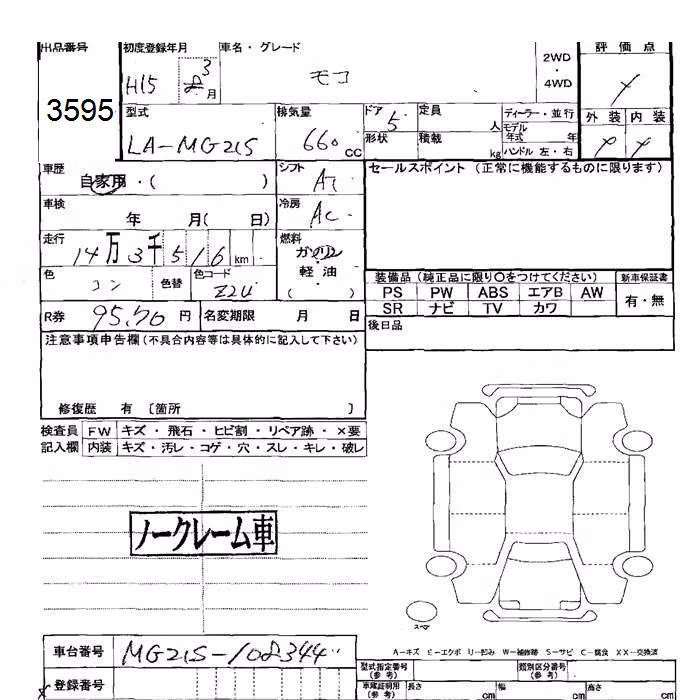 出品番号 初度登録年月 車名・グレード 2WD・4WD 評価点
3595 H15 3月 モコ
型式 排気量 ドア 定員 人 ディーラー・並行 外装 内装
LA-MG21S 660cc 5 形状 積載 kg モデル年式 年 ハンドル 左・右
車歴 自家用・( ) シフト AT セールスポイント(正常に機能するものに限ります)
車検 年 月( 日) 冷房 AC
走行 14万3千516km 燃料 ガソリン・軽油 ( )
色 コン 色替 色コード Z2U 装備品(純正品に限り○をつけてください) 新車保証書
PS PW ABS エアB AW 有・無
SR ナビ TV カワ
R券 円 名変期限 月 日 後日品
注意事項申告欄(不具合内容等は具体的に記入して下さい)
修復歴 有 〔箇所 〕
検査員 FW キズ・飛石・ヒビ割・リペア跡・×要
記入欄 内装 キズ・汚レ・コゲ・穴・スレ・キレ・破レ
ノークレーム車
スペア
A-キズ E-エクボ U-凹み W-補修跡 S-サビ C-腐食 XX-交換済
車台番号 MG21S-108344
型式指定番号(参考) 類別区分番号(参考)
登録番号 車庫証明用(参考) 長さ cm 幅 cm 高さ cm